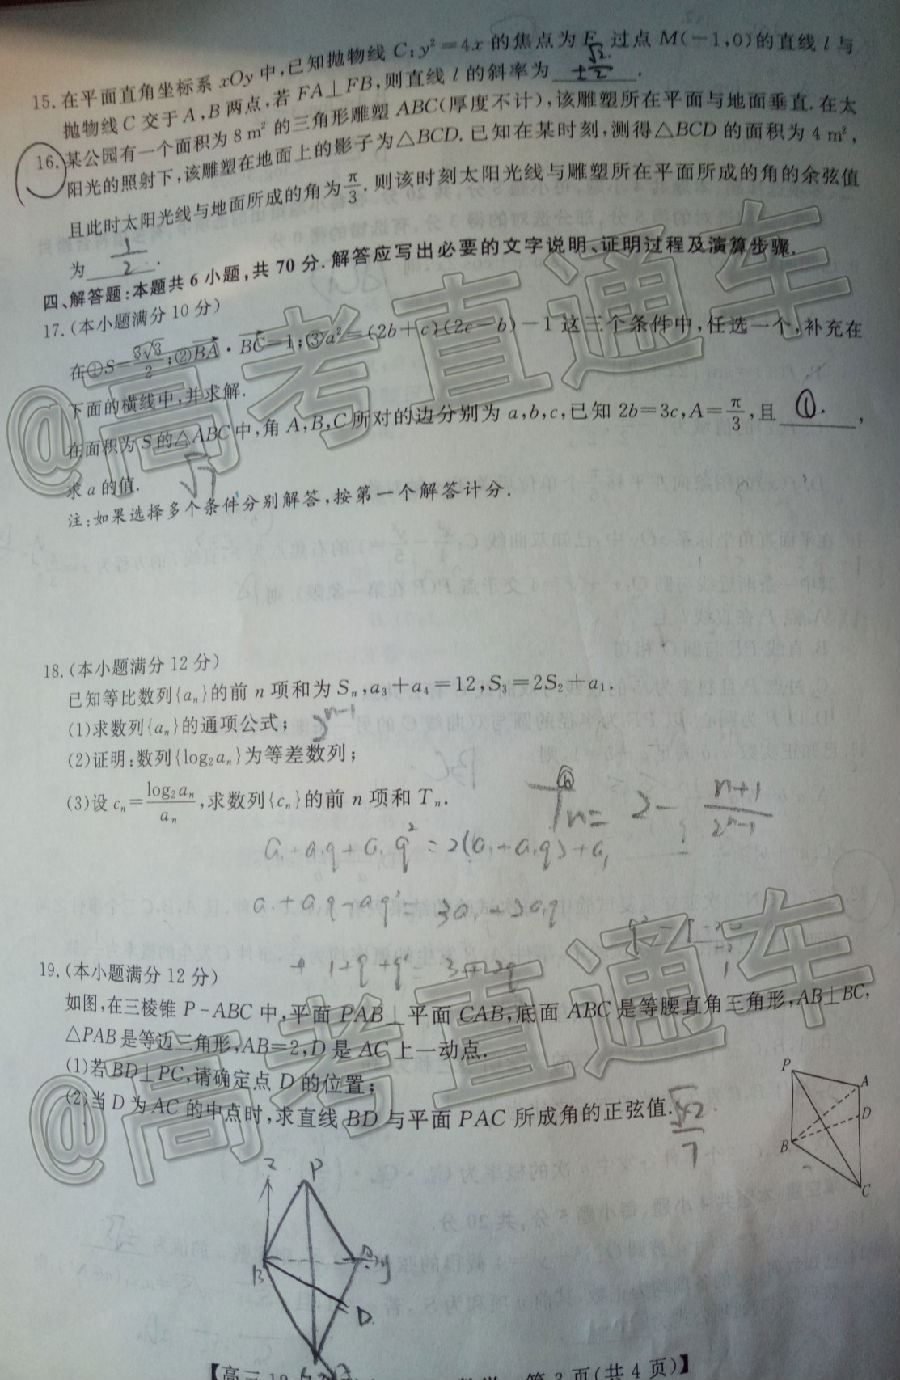 15. 在平面直角坐标系 xOy 中,已知抛物线 C:y²=4x 的焦点为 F,过点 M(-1,0)的直线 l 与
抛物线 C 交于 A,B 两点,若 FA⊥FB,则直线 l 的斜率为 ±√2/2 .
16. 某公园有一个面积为 8 m² 的三角形雕塑 ABC(厚度不计),该雕塑所在平面与地面垂直.在太
阳光的照射下,该雕塑在地面上的影子为△BCD.已知在某时刻,测得△BCD 的面积为 4 m²,
且此时太阳光线与地面所成的角为 π/3 .则该时刻太阳光线与雕塑所在平面所成的角的余弦值
为 1/2 .
四、解答题:本题共 6 小题,共 70 分.解答应写出必要的文字说明、证明过程及演算步骤.
17.(本小题满分 10 分)
在①S=3√3/2;②BA·BC=1;③a²=(2b+c)(2c-b)-1 这三个条件中,任选一个,补充在
下面的横线中,并求解.
在面积为 S 的△ABC 中,角 A,B,C 所对的边分别为 a,b,c,已知 2b=3c,A=π/3,且 ①. ,
求 a 的值. √7
注:如果选择多个条件分别解答,按第一个解答计分.
18.(本小题满分 12 分)
已知等比数列{aₙ}的前 n 项和为 Sₙ,a₃+a₄=12,S₃=2S₂+a₁.
(1)求数列{aₙ}的通项公式;
(2)证明:数列{log₂aₙ}为等差数列;
(3)设 cₙ=log₂aₙ/aₙ,求数列{cₙ}的前 n 项和 Tₙ.
Tn= 2- n+1/2ⁿ⁻¹
a₁+a₁q+a₁q²=2(a₁+a₁q)+a₁
19.(本小题满分 12 分)
如图,在三棱锥 P-ABC 中,平面 PAB⊥平面 CAB,底面 ABC 是等腰直角三角形,AB⊥BC,
△PAB 是等边三角形,AB=2,D 是 AC 上一动点.
(1)若 BD⊥PC,请确定点 D 的位置;
(2)当 D 为 AC 的中点时,求直线 BD 与平面 PAC 所成角的正弦值.
P
A
D
B
C
z
P
y
B
D
@高考直通车
@高考直通车